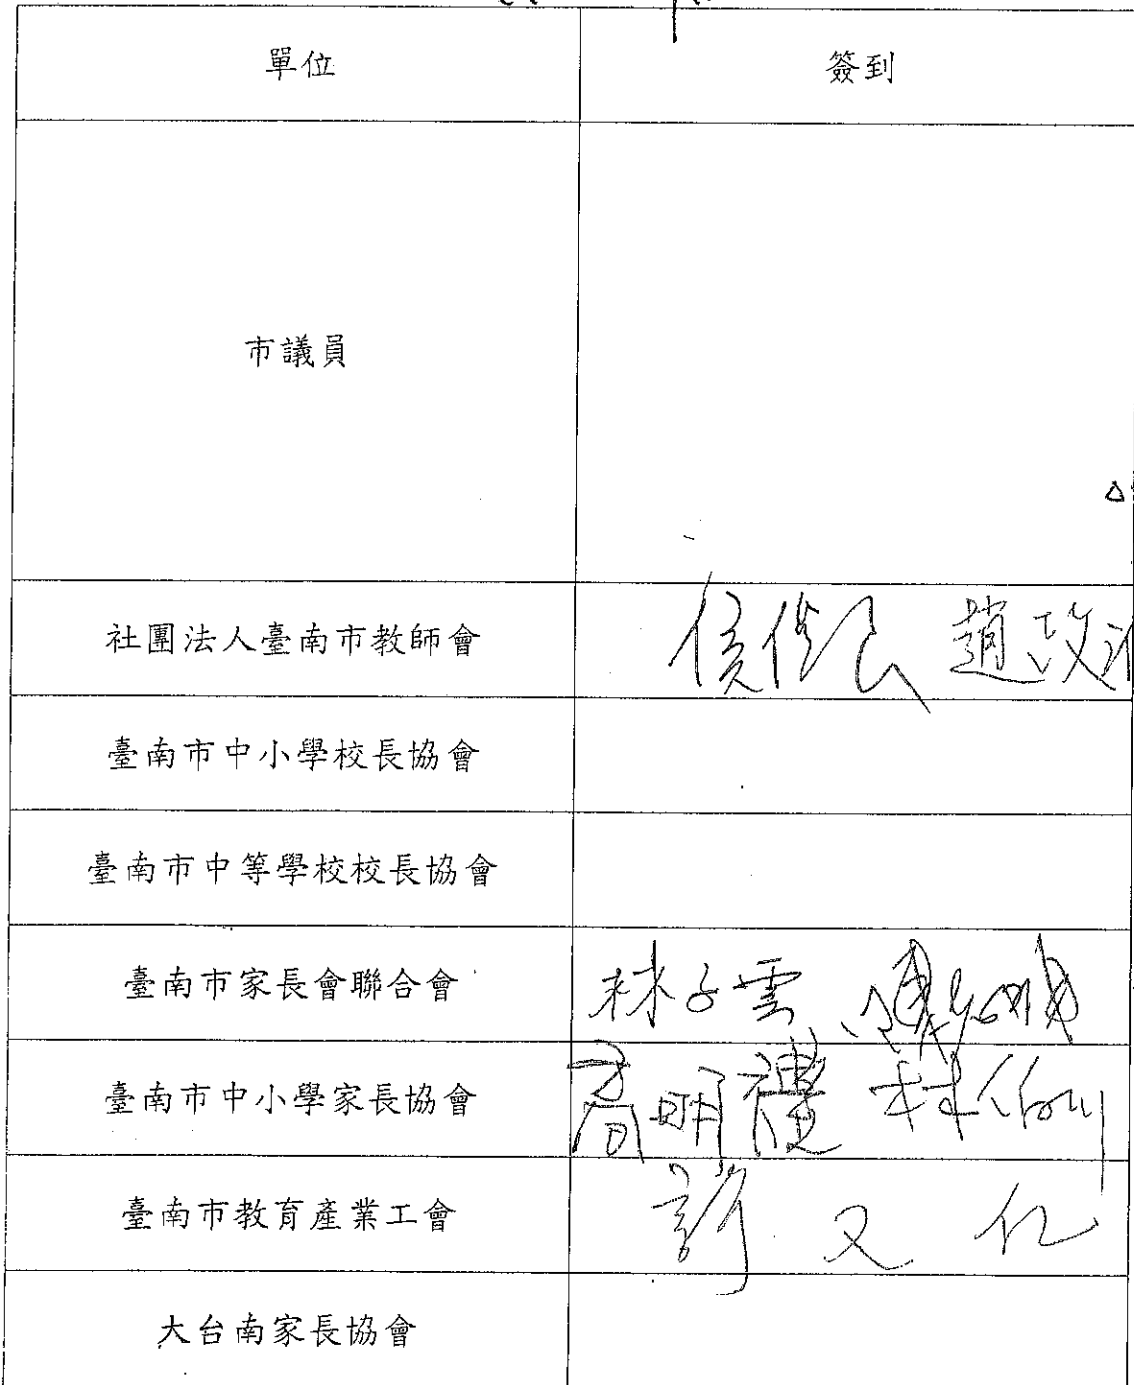 單位 簽到
市議員
社團法人臺南市教師會 侯俊良 趙政
臺南市中小學校長協會
臺南市中等學校校長協會
臺南市家長會聯合會 林子雲
臺南市中小學家長協會 喬明禮 林伯川
臺南市教育產業工會 許又仁
大台南家長協會